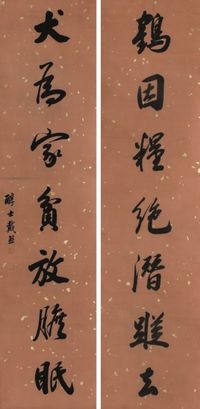 鶴因糧絕潛蹤去
犬為家貧放膽眠
醇士戴熙